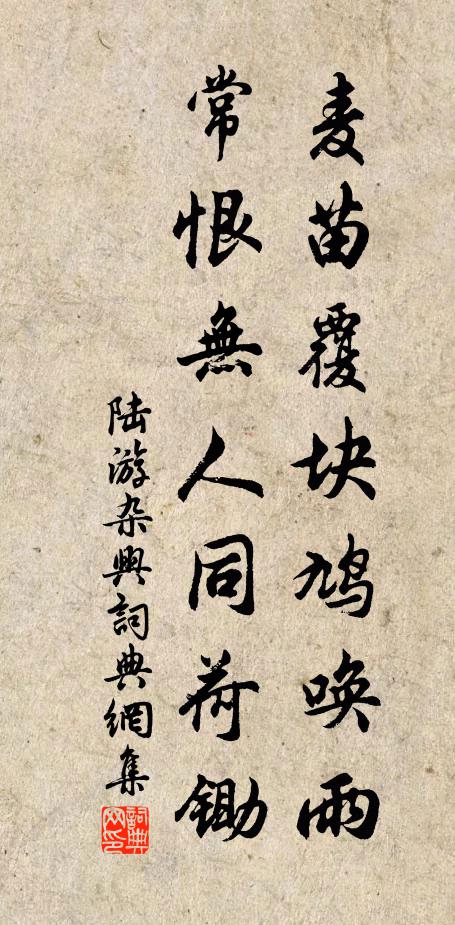 麦苗覆块鸠唤雨
常恨無人同荷锄
陆游杂興詞典網集
詞典网印